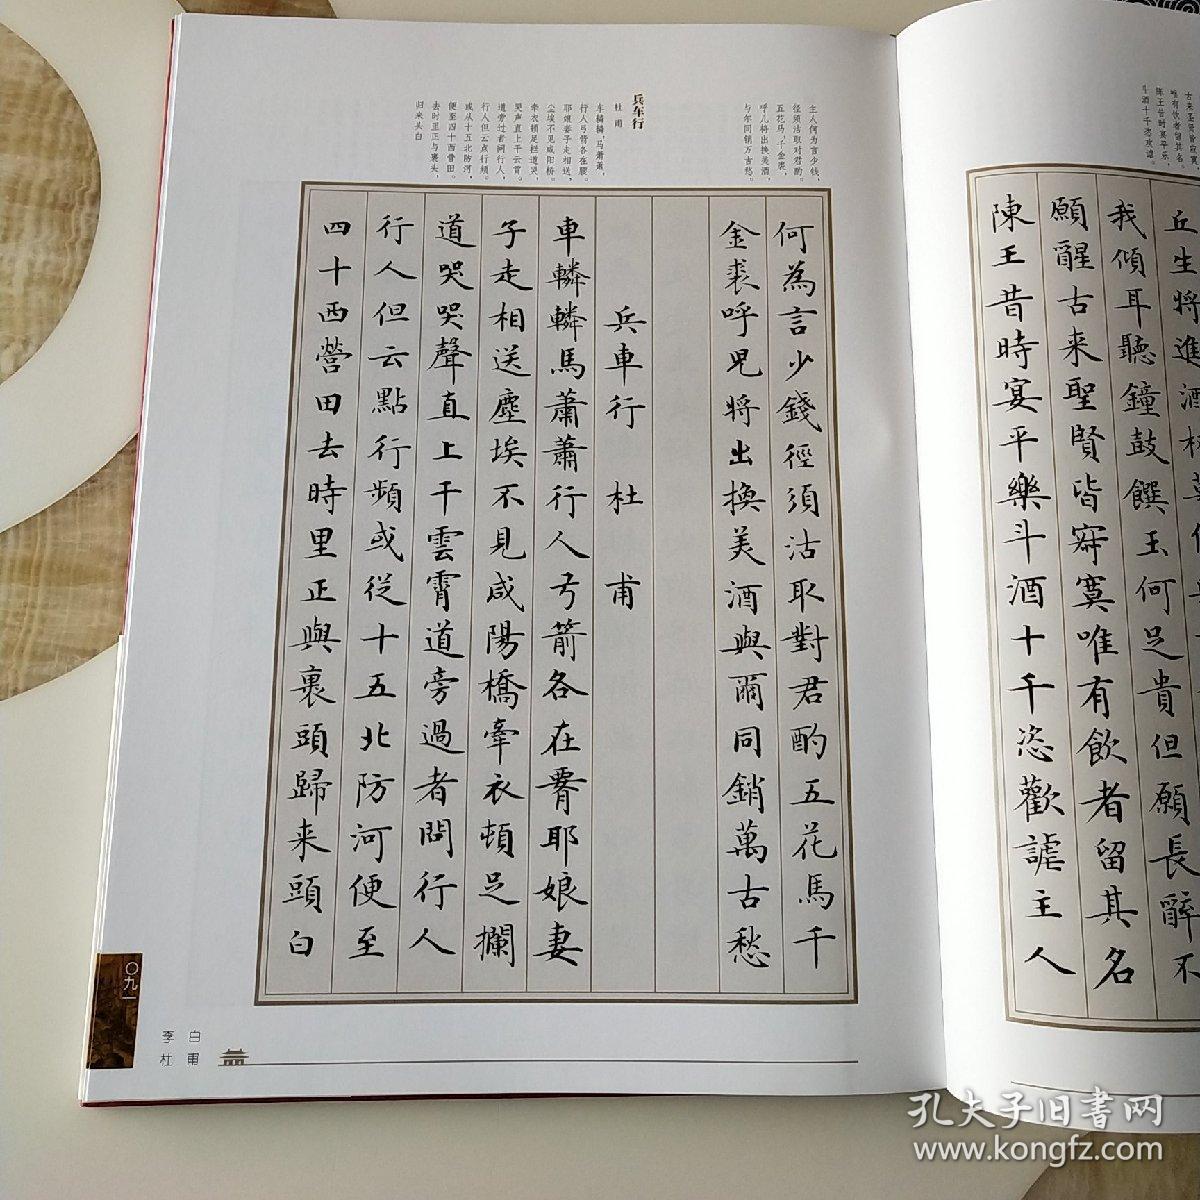 古来圣贤皆寂寞，
唯有饮者留其名。
陈王昔时宴平乐，
斗酒十千恣欢谑。
丘生將進酒
我傾耳聽鐘鼓饌玉何足貴但願長醉不
願醒古来聖賢皆寂寞唯有飲者留其名
陳王昔時宴平樂斗酒十千恣歡謔主人
主人何为言少钱，
径须沽取对君酌。
五花马，千金裘，
呼儿将出换美酒，
与尔同销万古愁。
兵车行
杜甫
车辚辚，马萧萧，
行人弓箭各在腰。
耶娘妻子走相送，
尘埃不见咸阳桥。
牵衣顿足拦道哭，
哭声直上干云霄。
道旁过者问行人，
行人但云点行频。
或从十五北防河，
便至四十西营田。
去时里正与裹头，
归来头白
何為言少錢徑須沽取對君酌五花馬千
金裘呼兒將出換美酒與爾同銷萬古愁
兵車行 杜甫
車轔轔馬蕭蕭行人弓箭各在腰耶娘妻
子走相送塵埃不見咸陽橋牽衣頓足攔
道哭哭聲直上干雲霄道旁過者問行人
行人但云點行頻或從十五北防河便至
四十西營田去時里正與裹頭歸来頭白
〇九一
李白
杜甫
孔夫子旧书网
www.kongfz.com